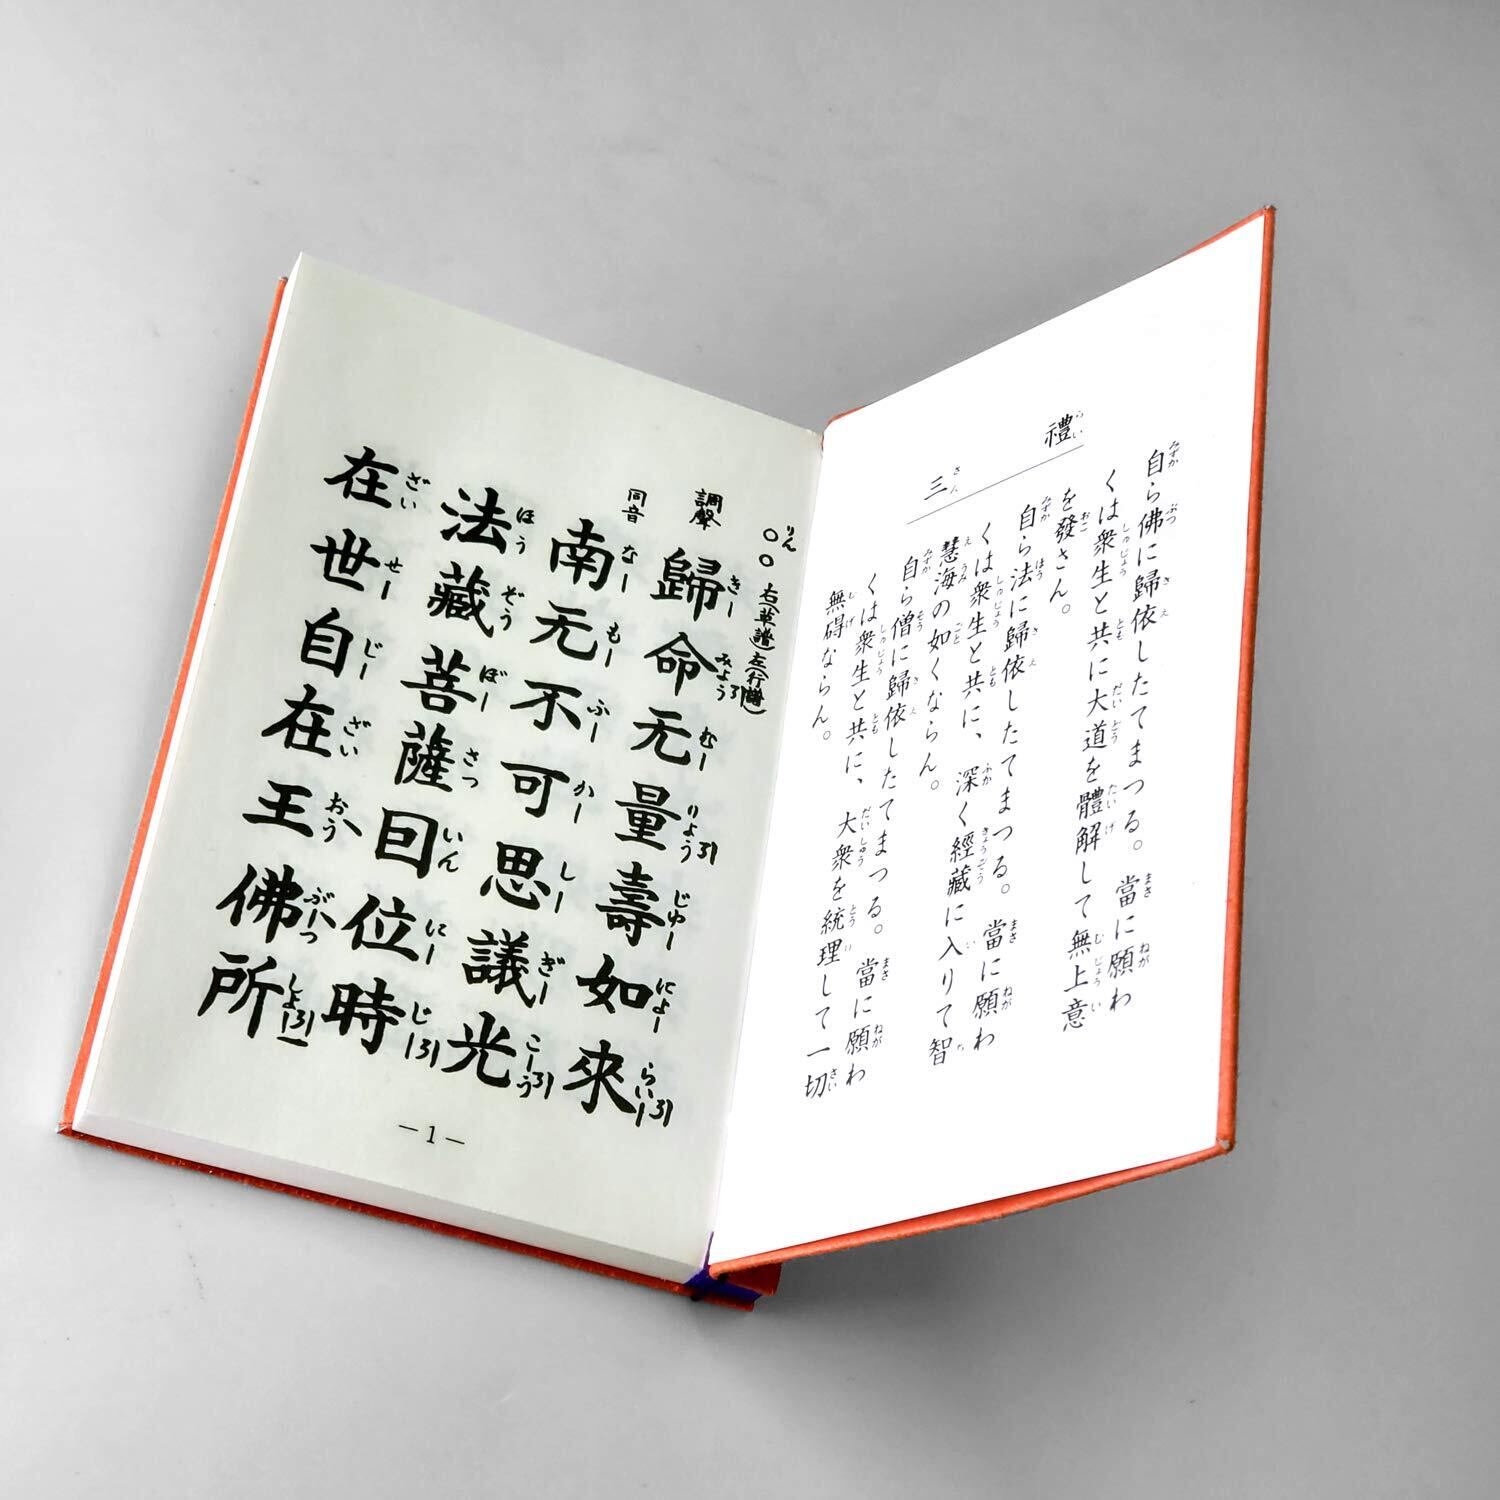 三禮
自ら佛に歸依したてまつる。當に願わ
くは衆生と共に大道を體解して無上意
を發さん。
自ら法に歸依したてまつる。當に願わ
くは衆生と共に、深く經藏に入りて智
慧海の如くならん。
自ら僧に歸依したてまつる。當に願わ
くは衆生と共に、大衆を統理して一切
無碍ならん。
りん
○○ 右(草譜)左(行譜)
調聲 歸命无量壽如來
同音 南无不可思議光
法藏菩薩囙位時
在世自在王佛所
—1—